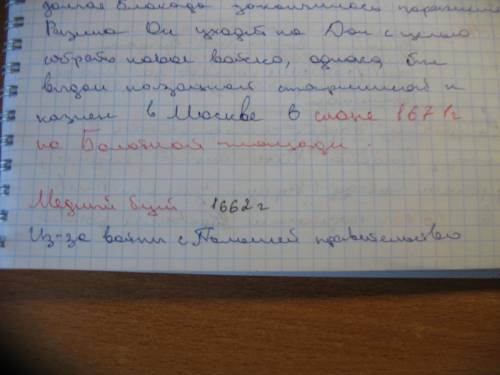 долгая блокада закончилась поражением
Разина Он уходит на Дон с целью
собрать новое войско, однако был
выдан казацкой старшиной и
казнен в Москве в июне 1671г
на Болотной площади.
Медный бунт 1662г
Из-за войны с Польшей правительство